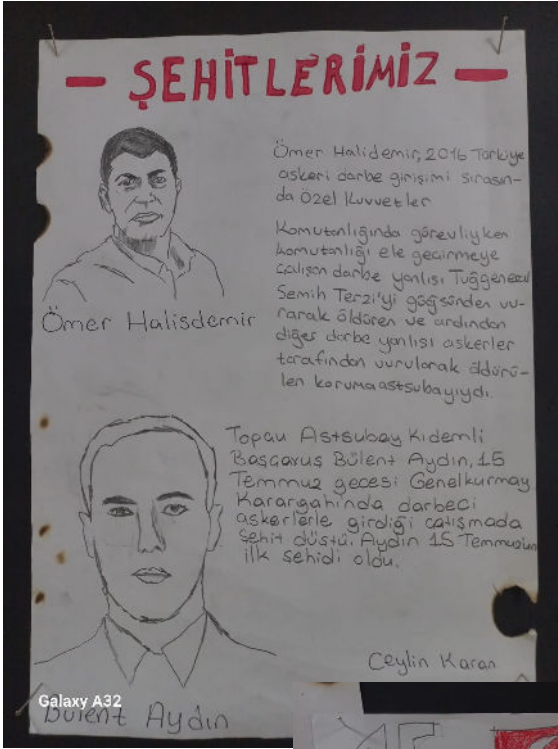 - ŞEHİTLERİMİZ -
Ömer Halidemir, 2016 Türkiye
askeri darbe girişimi sırasın-
da Özel Kuvvetler
Komutanlığında görevliyken
komutanlığı ele geçirmeye
çalışan darbe yanlısı Tuğgeneral
Semih Terzi'yi göğsünden vu-
rarak öldüren ve ardından
diğer darbe yanlısı askerler
tarafından vurularak öldürü-
len koruma astsubayıydı.
Ömer Halisdemir
Topçu Astsubay Kıdemli
Başçavuş Bülent Aydın, 15
Temmuz gecesi Genelkurmay
Karargahı'nda darbeci
askerlerle girdiği çatışmada
şehit düştü. Aydın 15 Temmuzun
ilk şehidi oldu.
Bülent Aydın
Ceylin Karan
Galaxy A32